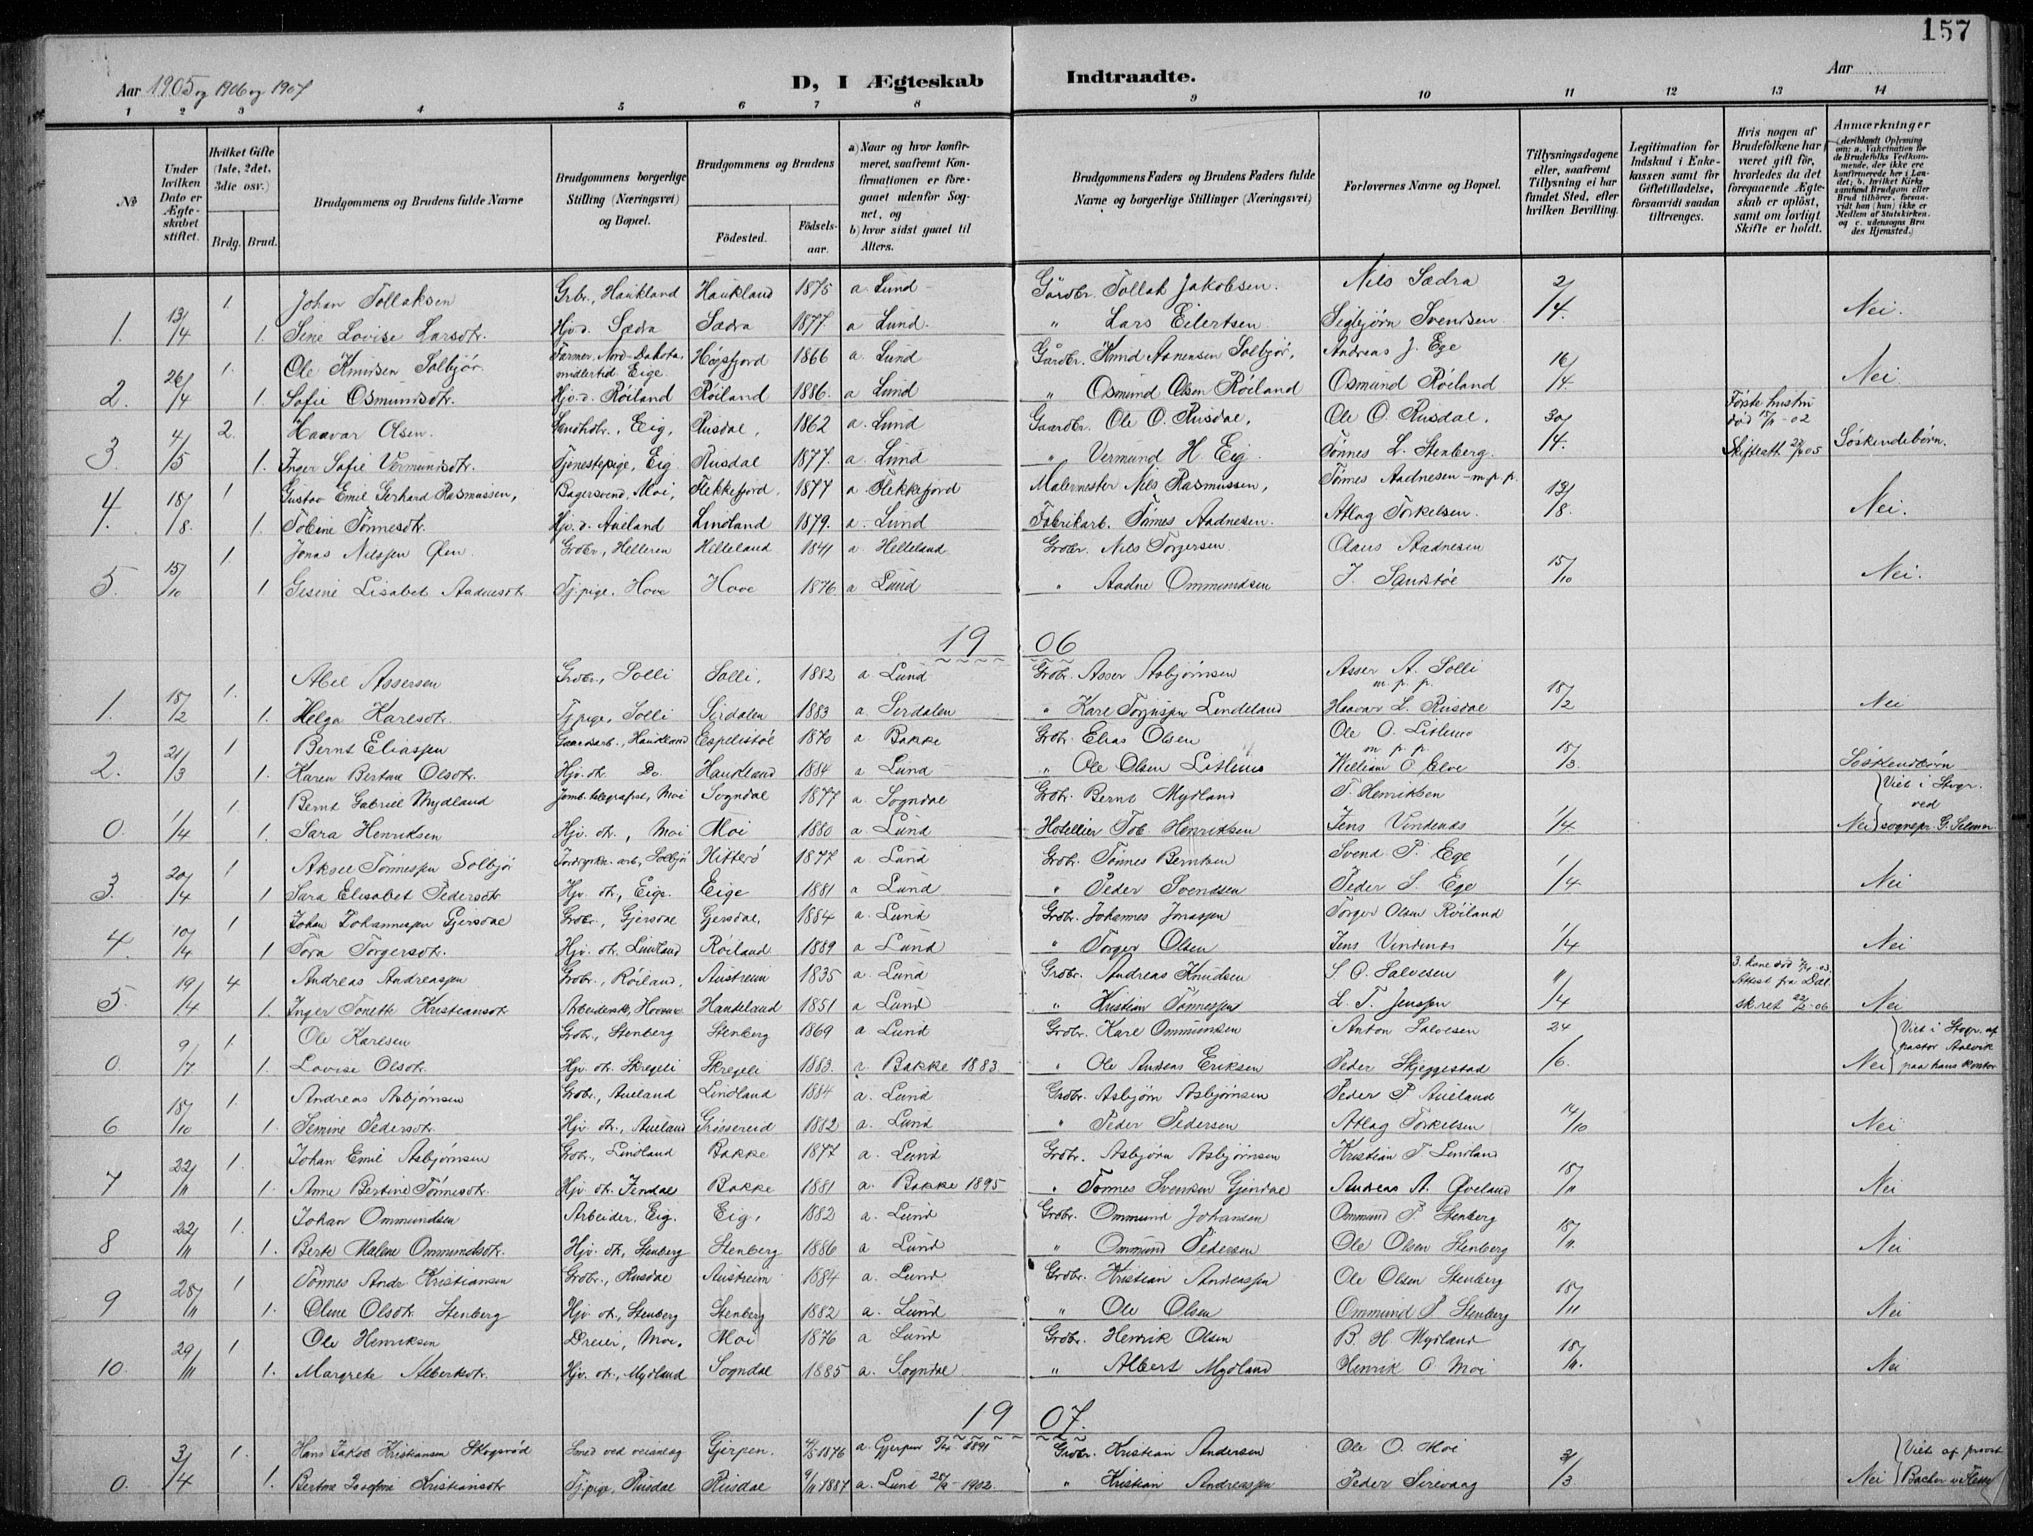 157
Aar 1905 og 1906 og 1907
D, I Ægteskab Indtraadte.
Aar
1 2 3 4 5 6 7 8 9 10 11 12 13 14
No
Under hvilken Dato er Ægteskabet stiftet.
Hvilket Gifte (1ste, 2det, 3die osv.)
Brdg. Brud.
Brudgommens og Brudens fulde Navne
Brudgommens borgerlige Stilling (Næringsvei) og Bopæl.
Brudgommens og Brudens
Fødested. Fødselsaar.
a) Naar og hvor konfirmeret, saafremt Konfirmationen er foregaaet udenfor Sognet, og
b) hvor sidst gaaet til Alters.
Brudgommens Faders og Brudens Faders fulde Navne og borgerlige Stillinger (Næringsvei)
Forlovernes Navne og Bopæl.
Tillysningsdagene eller, saafremt Tillysning ei har fundet Sted, efter hvilken Bevilling.
Legitimation for Indskud i Enkekassen samt for Giftetilladelse, forsaavidt saadan tiltrænges.
Hvis nogen af Brudefolkene har været gift før, hvorledes da det foregaaende Ægteskab er opløst, samt om lovligt Skifte er holdt.
Anmærkninger
1. 13/4 1. Johan Tollaksen Grbr., Haukland Haukland 1875 a. Lund Gårdbr. Tollak Jakobsen. Nils Sædra 2/4. Nei.
1. Sine Lovise Larsdtr. Hjv.d. Sædra Sædra 1877. a Lund. " Lars Eilertsen Sigbjørn Svendsen
2. 26/4 1. Ole Knudsen Solbjør Farmer, Nord-Dakota, midlertid Eige Høgsfjord 1866 a. Lund Gårdbr. Knud Aanensen Solbjør, Andreas J. Ege 16/4. Nei.
1. Sofie Osmundsdtr. Hjv.d. Røiland Røiland 1886. a Lund " Osmund Olsen Røiland Osmund Røiland
3 4/5 2. Haavar Olsen. Landhdlr., Eig, Rusdal, 1862 a. Lund Gaardbr. Ole O. Rusdal, Ole O. Rusdal, 30/4. Første hustru død 15/11-02 Søskendebørn.
1. Inger Sofie Vermundsdtr. Tjenestepige, Eig Rusdal 1877. a. Lund " Vermund H. Eig. Tønnes L. Stenberg.
4. 18/8. 1 Gustav Emil Gerhard Rasmussen, Bagersvend, Moi, Flekkefjord, 1877 a Flekkefjord Malermester Nils Rasmussen, Tønnes Aadnesen m.p.p. 13/8. Nei.
1. Tobine Tønnesdtr. Hjv.d. Aueland Lindland 1879. a. Lund Fabrikarb. Tønnes Aadnesen. Atlag Torkelsen.
5. 15/10 1 Jonas Nilssen Øen Grdbr., Helleren Helleland 1841 a. Helleland Grdbr. Nils Torgersen Claus Aadnesen 15/10 Nei.
1 Gesine Lisabet Aadnesdtr. Tj.pige, Hove Hove 1876 a Lund " Aadne Ommundsen J. Sandstøe
19 06
1. 18/2 1. Abel Assersen Grdbr., Solli Solli, 1882 a. Lund Grdbr. Asser Asbjørnsen Asser A. Solli m.p.p. 18/2 Nei
1. Helga Karlsdtr. Tj.pige, Solli Sirdalen 1883 a. Sirdalen " Karl Lindeland Haavar L. Rusdal
2. 21/3 1 Bernt Eliassen Gaardarb., Haukland Espelistøl 1870 a. Bakke Grdbr. Elias Olsen Ole O. m.p.p. 18/3. Søskendbørn
1. Karen Bertine Olsdtr. Hjv.dtr. Do. Haukland 1884 a. Lund " Ole Olsen William O Elve
0. 1. Bernt Gabriel Mydland Jernb. telegrafist, Moi Sogndal 1877 a. Sogndal Grdbr. Bernt Mydland T. Henriksen 1/4 Viet i Stvgr. ved
1. Sara Henriksen Hjv. dtr., Moi Moi 1880 a. Lund Hotellier Tob. Henriksen Jens Nei sognepr. G. Selmer.
3. 20/4 1 Aksel Tønnessen Solbjø Solbjø Hitterø 1877 a. Lund Grdbr. Tønnes Berntsen Svend P. Ege 1/4 Nei
1 Sara Elisabet Pedersdtr. Hjv. dtr., Eige. Eige 1881 a. Lund " Peder Svendsen Peder S. Ege
4. 10/4 1 Johan Johannessen Gjersdal Grdbr., Gjersdal Gjersdal, 1884 a. Lund Grdbr. Johannes Jonassen Torger Olsen Røiland 1/4 Nei
1 Tora Torgersdtr. Hjv. dtr. Røiland 1889 a Lund " Torger Olsen Jens
5. 19/4 4 Andreas Andreassen Grdbr., Røiland, Austreim 1835 a. Lund Grdbr. Andreas Knudsen S. O. Salvesen 3. kone død
1. Inger Tonette Kristiansdtr. Haukeland 1851 a. Lund " Kristian Tønnessen L. T. Jenssen Nei
0. 9/7 1. Ole Karlsen Grdbr., Stenberg Stenberg 1869 a Lund Grdbr. Karl Ommundsen Anton Salvesen 24/6. Viet i Stvgr. af pastor
1. Lovise Olsdtr. Hjv. dtr. Skregeli Skregeli 1883. a. Bakke 1883 " Ole Andreas Eriksen Peder Skjeggestad Nei paa hans kontor
6 18/10 1. Andreas Asbjørnsen Grdbr., Aueland Lindland 1884 a. Lund Grdbr. Asbjørn Asbjørnsen Peder P Aueland 14/10 Nei
1. Semine Pedersdtr. Hjv dtr., Aueland 1882 a. Lund " Peder Pedersen Atlag Torkelsen
7 22/11 1. Johan Emil Asbjørnsen Grdbr., Lindland Bakke 1877 a. Lund Grdbr. Asbjørn Asbjørnsen Kristian T Lindland 18/11 Nei
1. Anne Bertine Tønnesdtr. Hjv. dtr. Bakke 1881 a. Bakke 1895 " Tønnes Svendsen Andreas A. Øveland
8 22/11 1. Johan Ommundsen Arbeider, Eig. Eig, 1882 a. Lund Grdbr. Ommund Johansen Ommund P. Stenberg 18/11. Nei
1. Berte Malene Ommundsdtr. Hjv. dtr., Stenberg Stenberg 1886 a Lund " Ommund Pedersen Ole Olsen Stenberg
9 1 Tønnes Andr Kristiansen Grdbr., Rusdal Austreim 1884 a. Lund Grdbr. Kristian Andreassen Ole Olsen Stenberg 18/11 Nei
1. Oline Olsdtr. Stenberg Hjv. dtr., Stenberg Stenberg 1882 a. Lund " Ole Olsen Ommund P. Stenberg
10. 29/11 1 Ole Henriksen Dreier, Moi. Moi 1876 a Lund Grdbr. Henrik Olsen B. H Mydland 18/11. Nei
1. Margrete Albertsdtr. Hjv. dtr., Mydland Sogndal 1885 a. Sogndal " Albert Mydland Henrik O. Moi
19 07.
0. 3/4 1. Hans Jakob Kristiansen Skogsrød Smed ved veianlæg Gjerpen. 1876 a. Gjerpen 1891 Grdbr. Kristian Andersen Ole O. Moi Viet af provst
1. Bertine Josefine Kristiansdtr Tj.pige, Rusdal Rusdal 9/11 1887 a. Lund 1902. " Kristian Andreassen Peder Sirevaag Nei